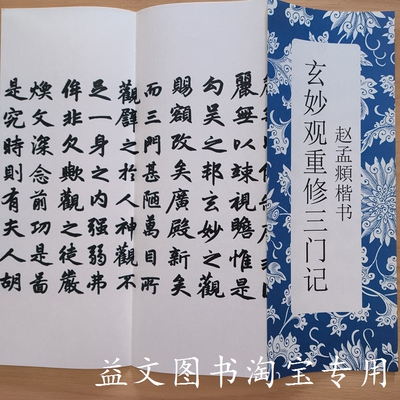 赵孟頫楷书
玄妙观重修三门记
麗無以竦視瞻惟是
勾吴之邦玄妙之觀
賜額改矣廣殿新矣
而三門甚陋萬目所
觀譬之於人神觀不
足一身之内强弱弗
侔非欠歟觀之徒嚴
煥文深念前功是啚
是究時則有夫人胡
益文图书淘宝专用